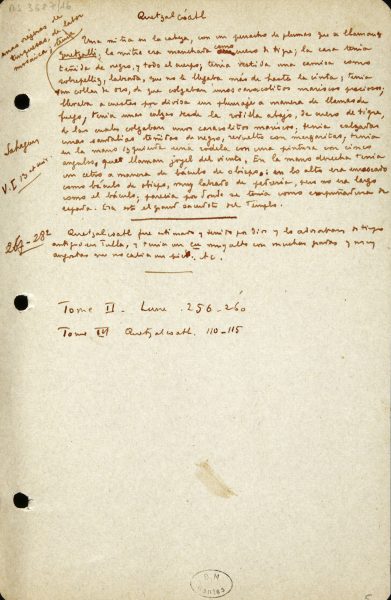 Ms 3687/16
Quetzalcóatl
unas orejeras de
turquesas de labor
mosaica; tenía
Una mitra en la cabeza, con un penacho de plumas que se llaman
Quetzalli; la mitra era manchada como cuero de tigre; la cara tenía
teñida de negro, y todo el cuerpo; tenía vestida una camisa como
sobrepelliz, labrada, que no le llegaba más de hasta la cinta; tenía
un collar de oro, de que colgaban unos caracolitos mariscos preciosos;
llevaba a cuestas por divisa un plumaje a manera de llamas de
fuego; tenía unas calzas desde la rodilla abajo, de cuero de tigre,
de las cuales colgaban unos caracolitos mariscos; tenía calzadas
unas sandalias teñidas de negro, revuelto con margaritas; tenía
en la mano izquierda una rodela con una pintura con cinco
angulos, que llaman joyel del viento. En la mano derecha tenía
un cetro a manera de báculo de obispo; en lo alto era enroscado
como báculo de obispo, muy labrado de pedrería, pero no era largo
como el báculo; parecía por donde se tenía como empuñadura de
espada. Era este el gran sacerdote del Templo.
Sahagun
V. I
269-282
Quetzalcóatl fue estimado y tenido por Dios y lo adoraban de tiempo
antiguo en Tulla, y tenía un cu muy alto con muchas gradas y muy
angostas que no cabía un pie. etc.
Tome II - Lune . 256-260
Tome III Quetzalcoatl. 110-115
B.N
Nantes